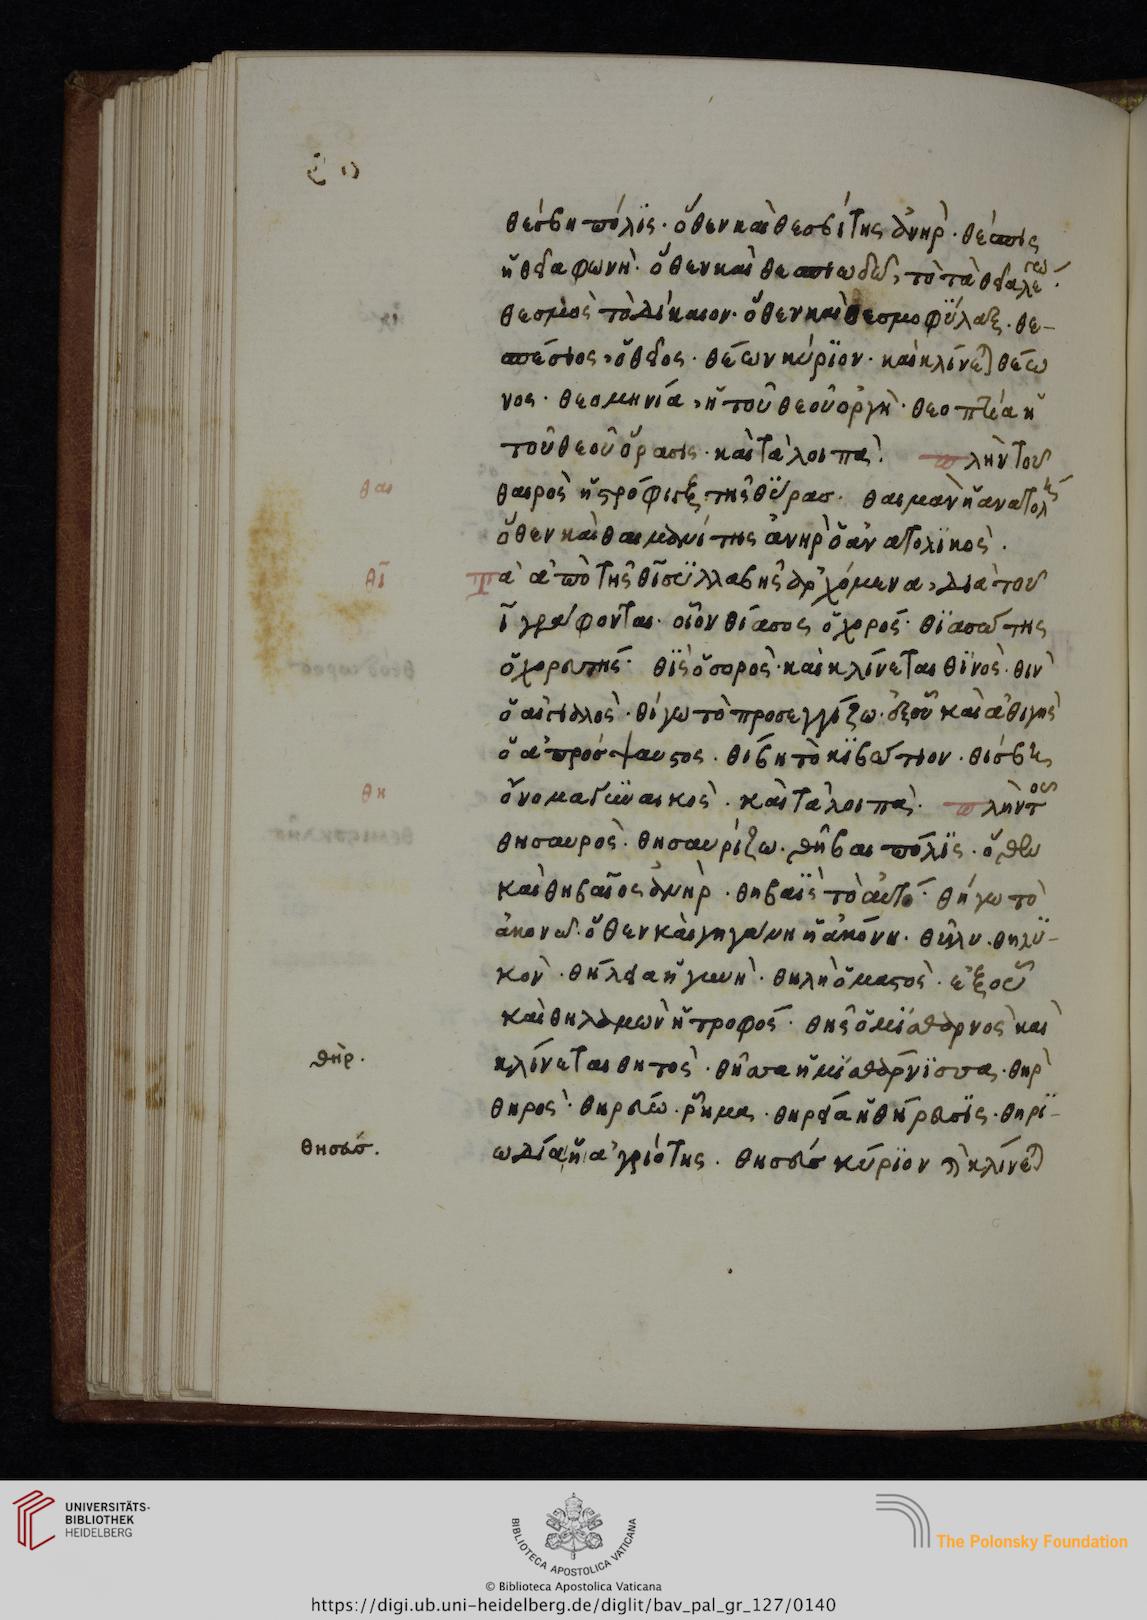 θέσβη πόλϊς· ὅθεν καὶ θεσβίτης ἀνηρ̀· θέσπις
ἡ θεία φωνὴ· ὅθεν καὶ θεσπιωδεῖν, τὸ τὰ θεῖα λέγειν·
θεσμὸς τὸ δίκαιον· ὅθεν καὶ θεσμοφΰλαξ· θε-
σπέσιος, ὁ θεῖος· θέων κύρϊον· καὶ κλίνεται θέω
νος· θεομηνία, ἡ τοῦ θεοῦ ὀργὴ· θεοπτία ἡ
τοῦ θεοῦ ὅρασις· καὶ τὰ λοιπὰ· πλὴν τοῦ
θαι
θαιρὸς ἡ στρόφιγξ τῆς θύρας· θαιμὰν ἡ ανατολὴ
ὅθεν καὶ θαιμανίτης ἀνηρ̀ ὁ ἀνατολϊκὸς·
θϊ
Τὰ ἀπὸ τῆς θϊ συλλαβῆς ἀρχόμενα, διὰ τοῦ
ϊ γράφονται· οἷον θίασος ὁ χορός· θϊασώτης
ὁ χορευτής· θϊς ὁ σορὸς· καὶ κλίνεται θϊνὸς· θιν
ὁ αἰγιαλὸς· θίγω τὸ προσεγγίζω· ἐξ οὗ καὶ ἀθιγὴς
ὁ ἀπρόσψαυστος· θίβη τὸ κϊβώτιον· θίσβη,
θη
ὄνομα γυναικὸς· καὶ τὰ λοιπὰ· πλὴν τοῦ
θησαυρὸς· θησαυρίζω· θῆβαι πόλϊς· ὅθεν
καὶ θηβαῖος ἀνηρ̀· θηβαϊς τὸ αὐτό· θήγω τὸ
ἀκονῶ· ὅθεν καὶ θηγάνη ἡ ἀκόνη· θῆλυ· θηλυ-
κὸν· θήλεια ἡ γυνὴ· θηλὴ ὁ μαστὸς· ἐξ οὗ
καὶ θηλαμὼν ἡ τροφός· θὴς ὁ μίσθαρνος καὶ
θὴρ·
κλίνεται θητὸς· θῆσσα ἡ μισθάρνϊσσα· θηρ̀
θηρὸς· θηρεύω· ῥῆμα· θηρεία ἡ θήρευσϊς· θηρϊ-
θησεύς·
ωδία ἡ ἀγριότης· θησεύς κύρϊον καὶ κλίνεται
UNIVERSITÄTS-
BIBLIOTHEK
HEIDELBERG
BIBLIOTECA APOSTOLICA VATICANA
The Polonsky Foundation
© Biblioteca Apostolica Vaticana
https://digi.ub.uni-heidelberg.de/diglit/bav_pal_gr_127/0140